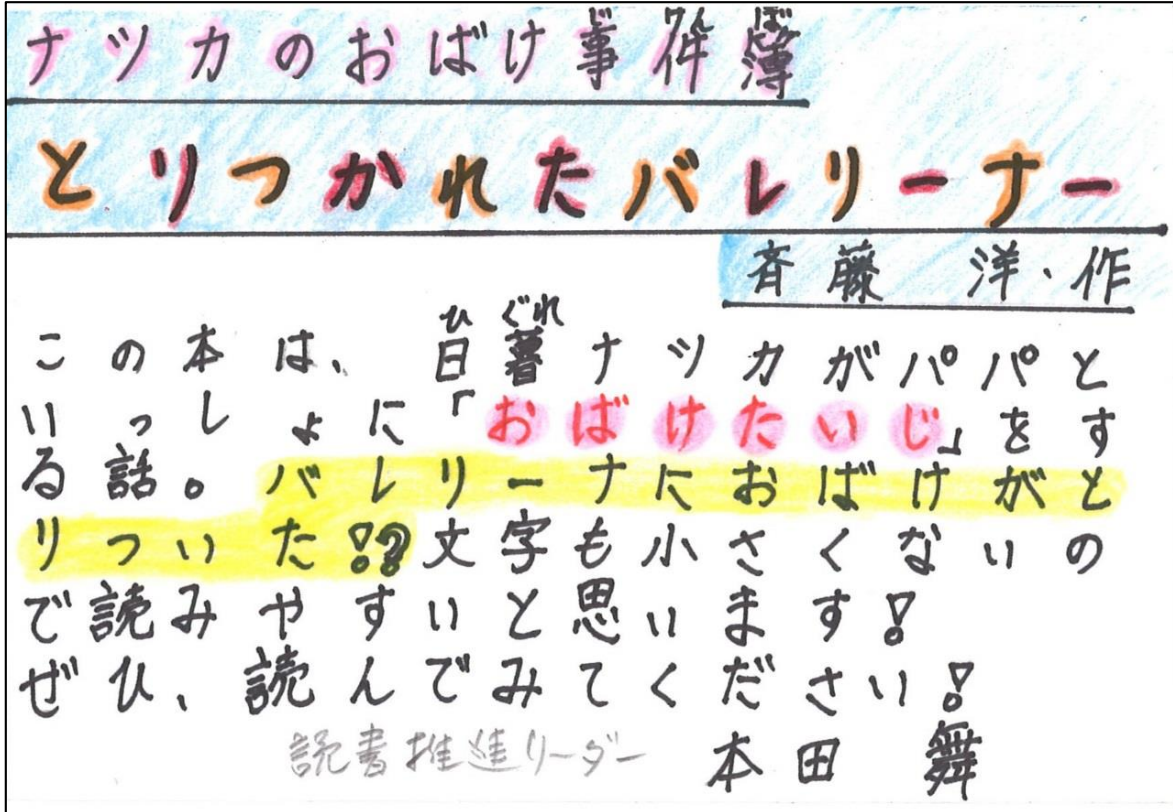 ナツカのおばけ事件簿
とりつかれたバレリーナー
斉藤 洋・作
この本は、日暮ナツカがパパと
いっしょに「おばけたいじ」をす
る話。バレリーナにおばけがと
りついた!?文字も小さくないの
で読みやすいと思います!
ぜひ、読んでみてください!
読書推進リーダー 本田 舞